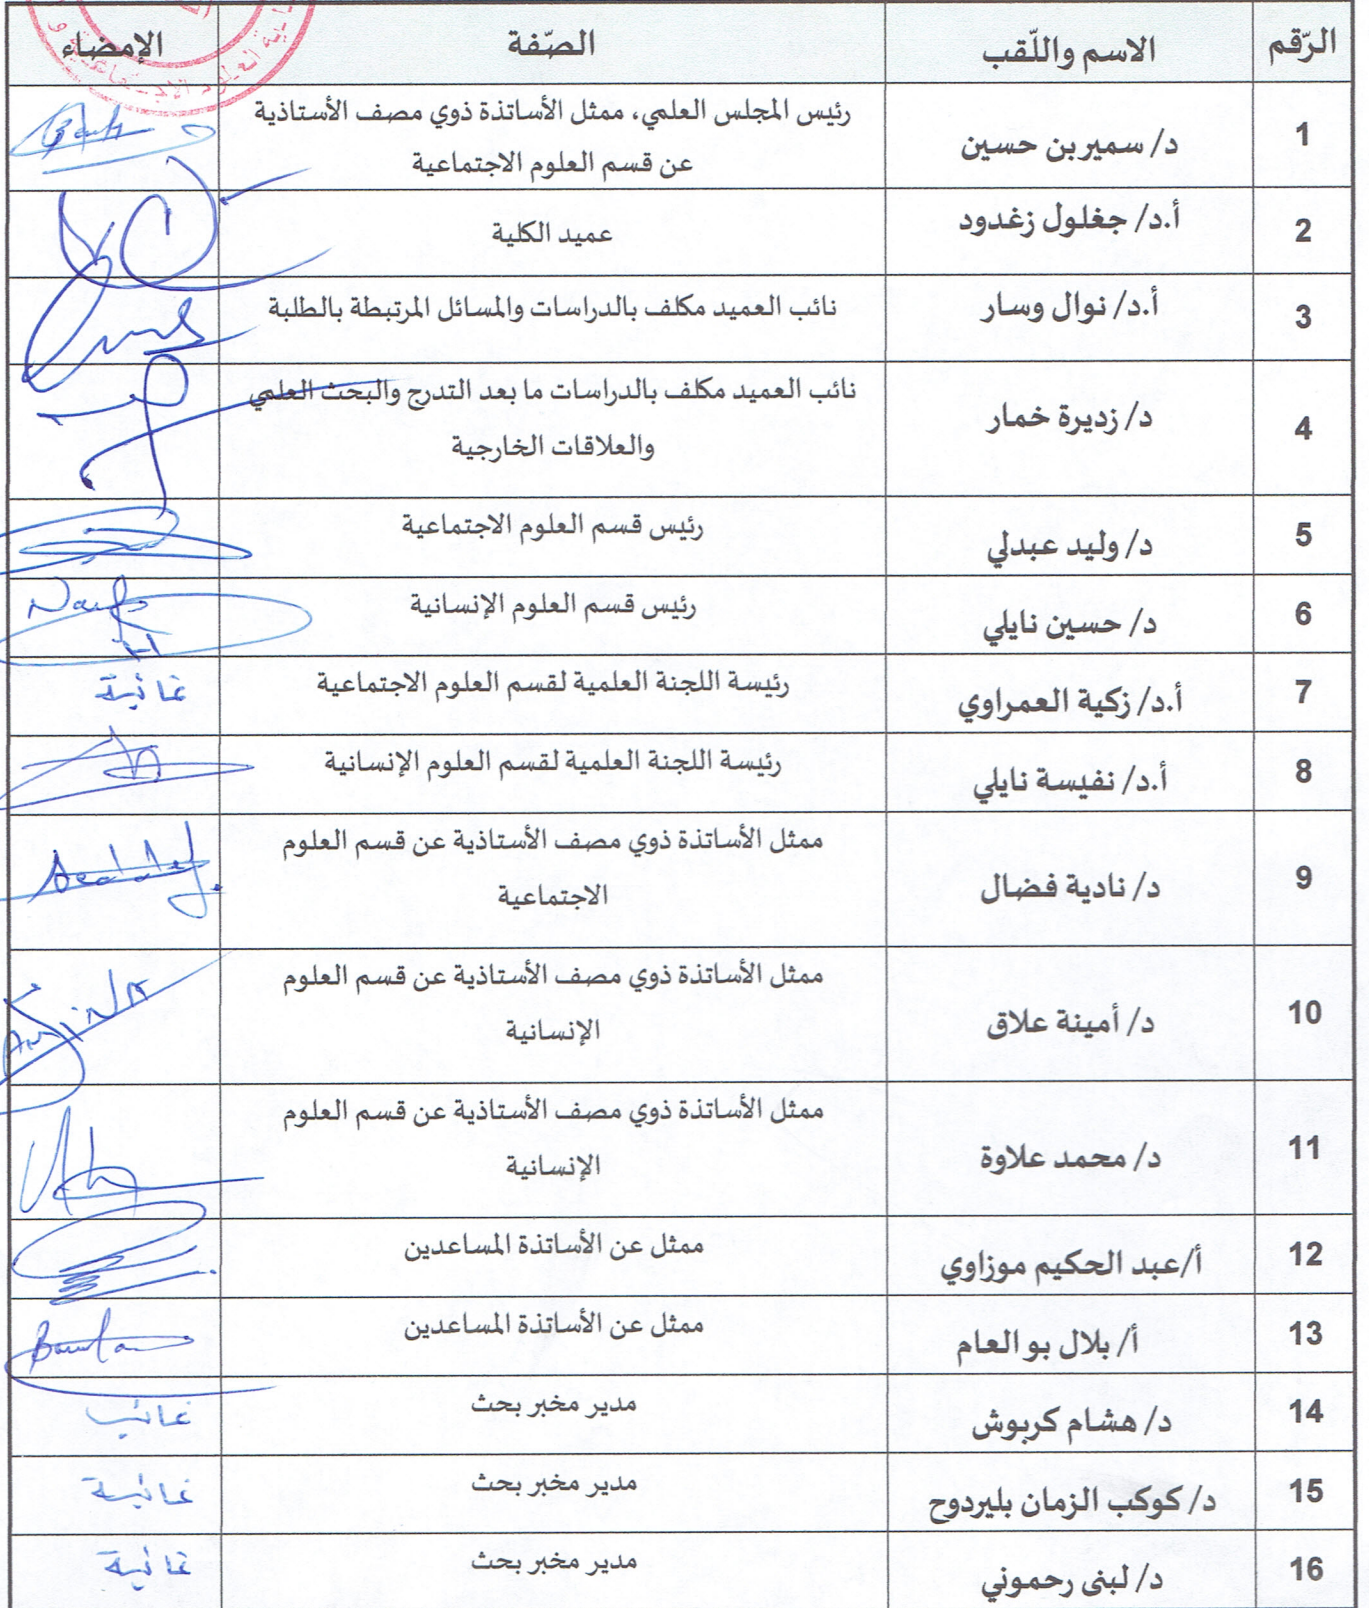 الرّقم الاسم واللّقب الصّفة الإمضاء
1 د/ سمير بن حسين رئيس المجلس العلمي، ممثل الأساتذة ذوي مصف الأستاذية
عن قسم العلوم الاجتماعية
2 أ.د/ جغلول زغدود عميد الكلية
3 أ.د/ نوال وسار نائب العميد مكلف بالدراسات والمسائل المرتبطة بالطلبة
4 د/ زديرة خمار نائب العميد مكلف بالدراسات ما بعد التدرج والبحث العلمي
والعلاقات الخارجية
5 د/ وليد عبدلي رئيس قسم العلوم الاجتماعية
6 د/ حسين نايلي رئيس قسم العلوم الإنسانية
7 أ.د/ زكية العمراوي رئيسة اللجنة العلمية لقسم العلوم الاجتماعية غائبة
8 أ.د/ نفيسة نايلي رئيسة اللجنة العلمية لقسم العلوم الإنسانية
9 د/ نادية فضال ممثل الأساتذة ذوي مصف الأستاذية عن قسم العلوم
الاجتماعية
10 د/ أمينة علاق ممثل الأساتذة ذوي مصف الأستاذية عن قسم العلوم
الإنسانية
11 د/ محمد علاوة ممثل الأساتذة ذوي مصف الأستاذية عن قسم العلوم
الإنسانية
12 أ/عبد الحكيم موزاوي ممثل عن الأساتذة المساعدين
13 أ/ بلال بو العام ممثل عن الأساتذة المساعدين
14 د/ هشام كربوش مدير مخبر بحث غائب
15 د/ كوكب الزمان بليردوح مدير مخبر بحث غائبة
16 د/ لبنى رحموني مدير مخبر بحث غائبة